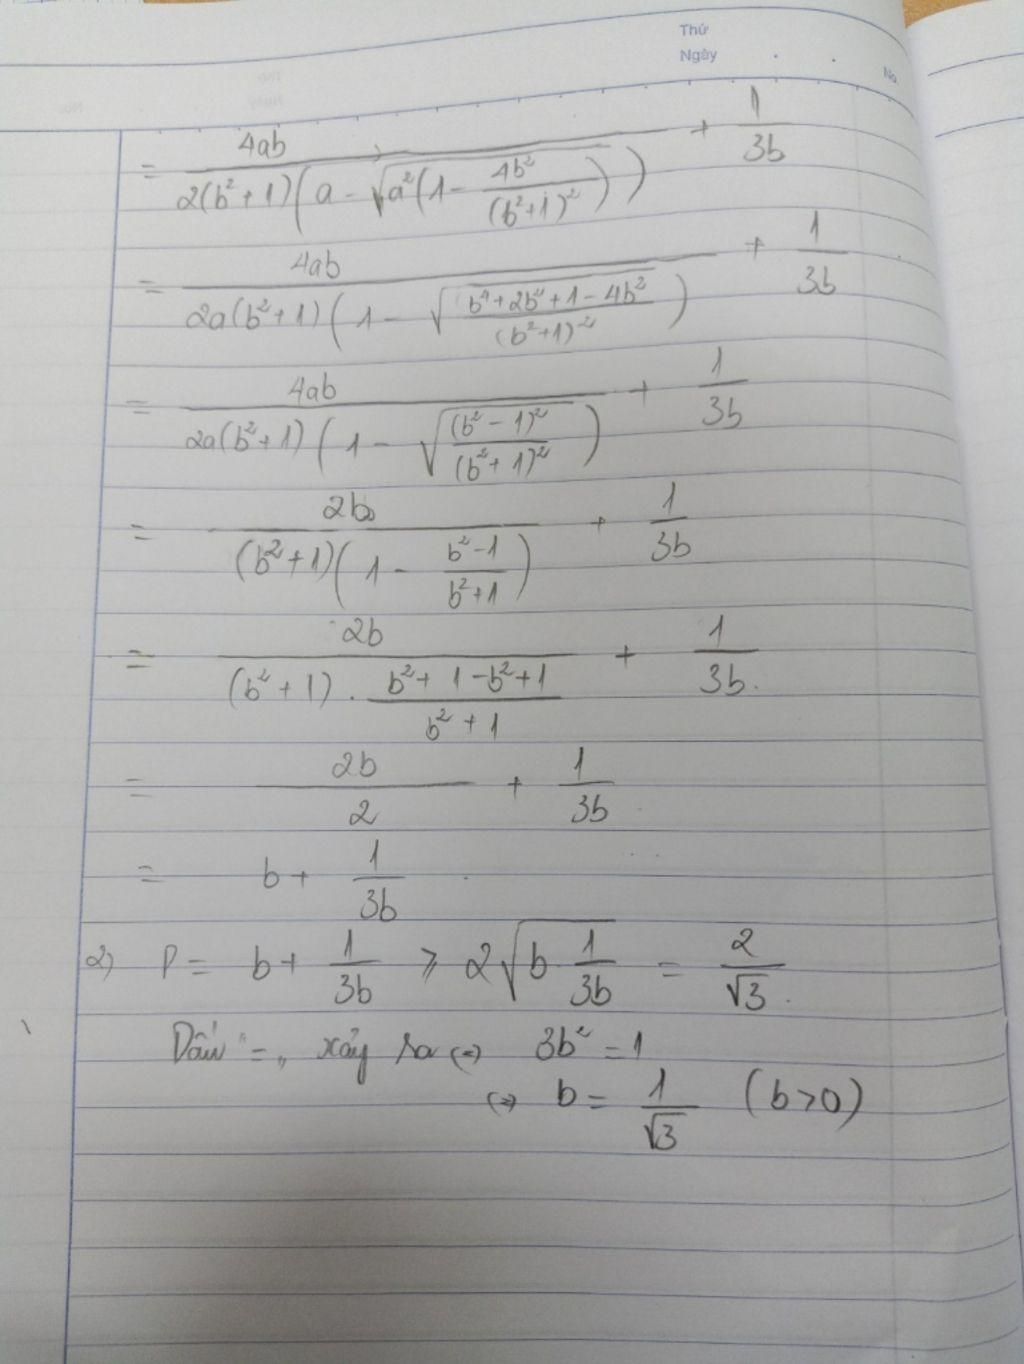 Thứ
Ngày
No.
= 4ab / 2(b² + 1)(a - √(a²(1 - 4b²/(b²+1)²))) + 1/3b
= 4ab / 2a(b²+1)(1 - √((b⁴+2b²+1-4b²)/(b²+1)²)) + 1/3b
= 4ab / 2a(b²+1)(1 - √((b²-1)²/(b²+1)²)) + 1/3b
= 2b / (b²+1)(1 - (b²-1)/(b²+1)) + 1/3b
= 2b / (b²+1) . (b²+1-b²+1)/(b²+1) + 1/3b.
= 2b/2 + 1/3b
= b + 1/3b
2) P = b + 1/3b ⩾ 2√(b . 1/3b) = 2/√3.
Dấu "=" xảy ra (=) 3b² = 1
(=) b = 1/√3 (b>0)